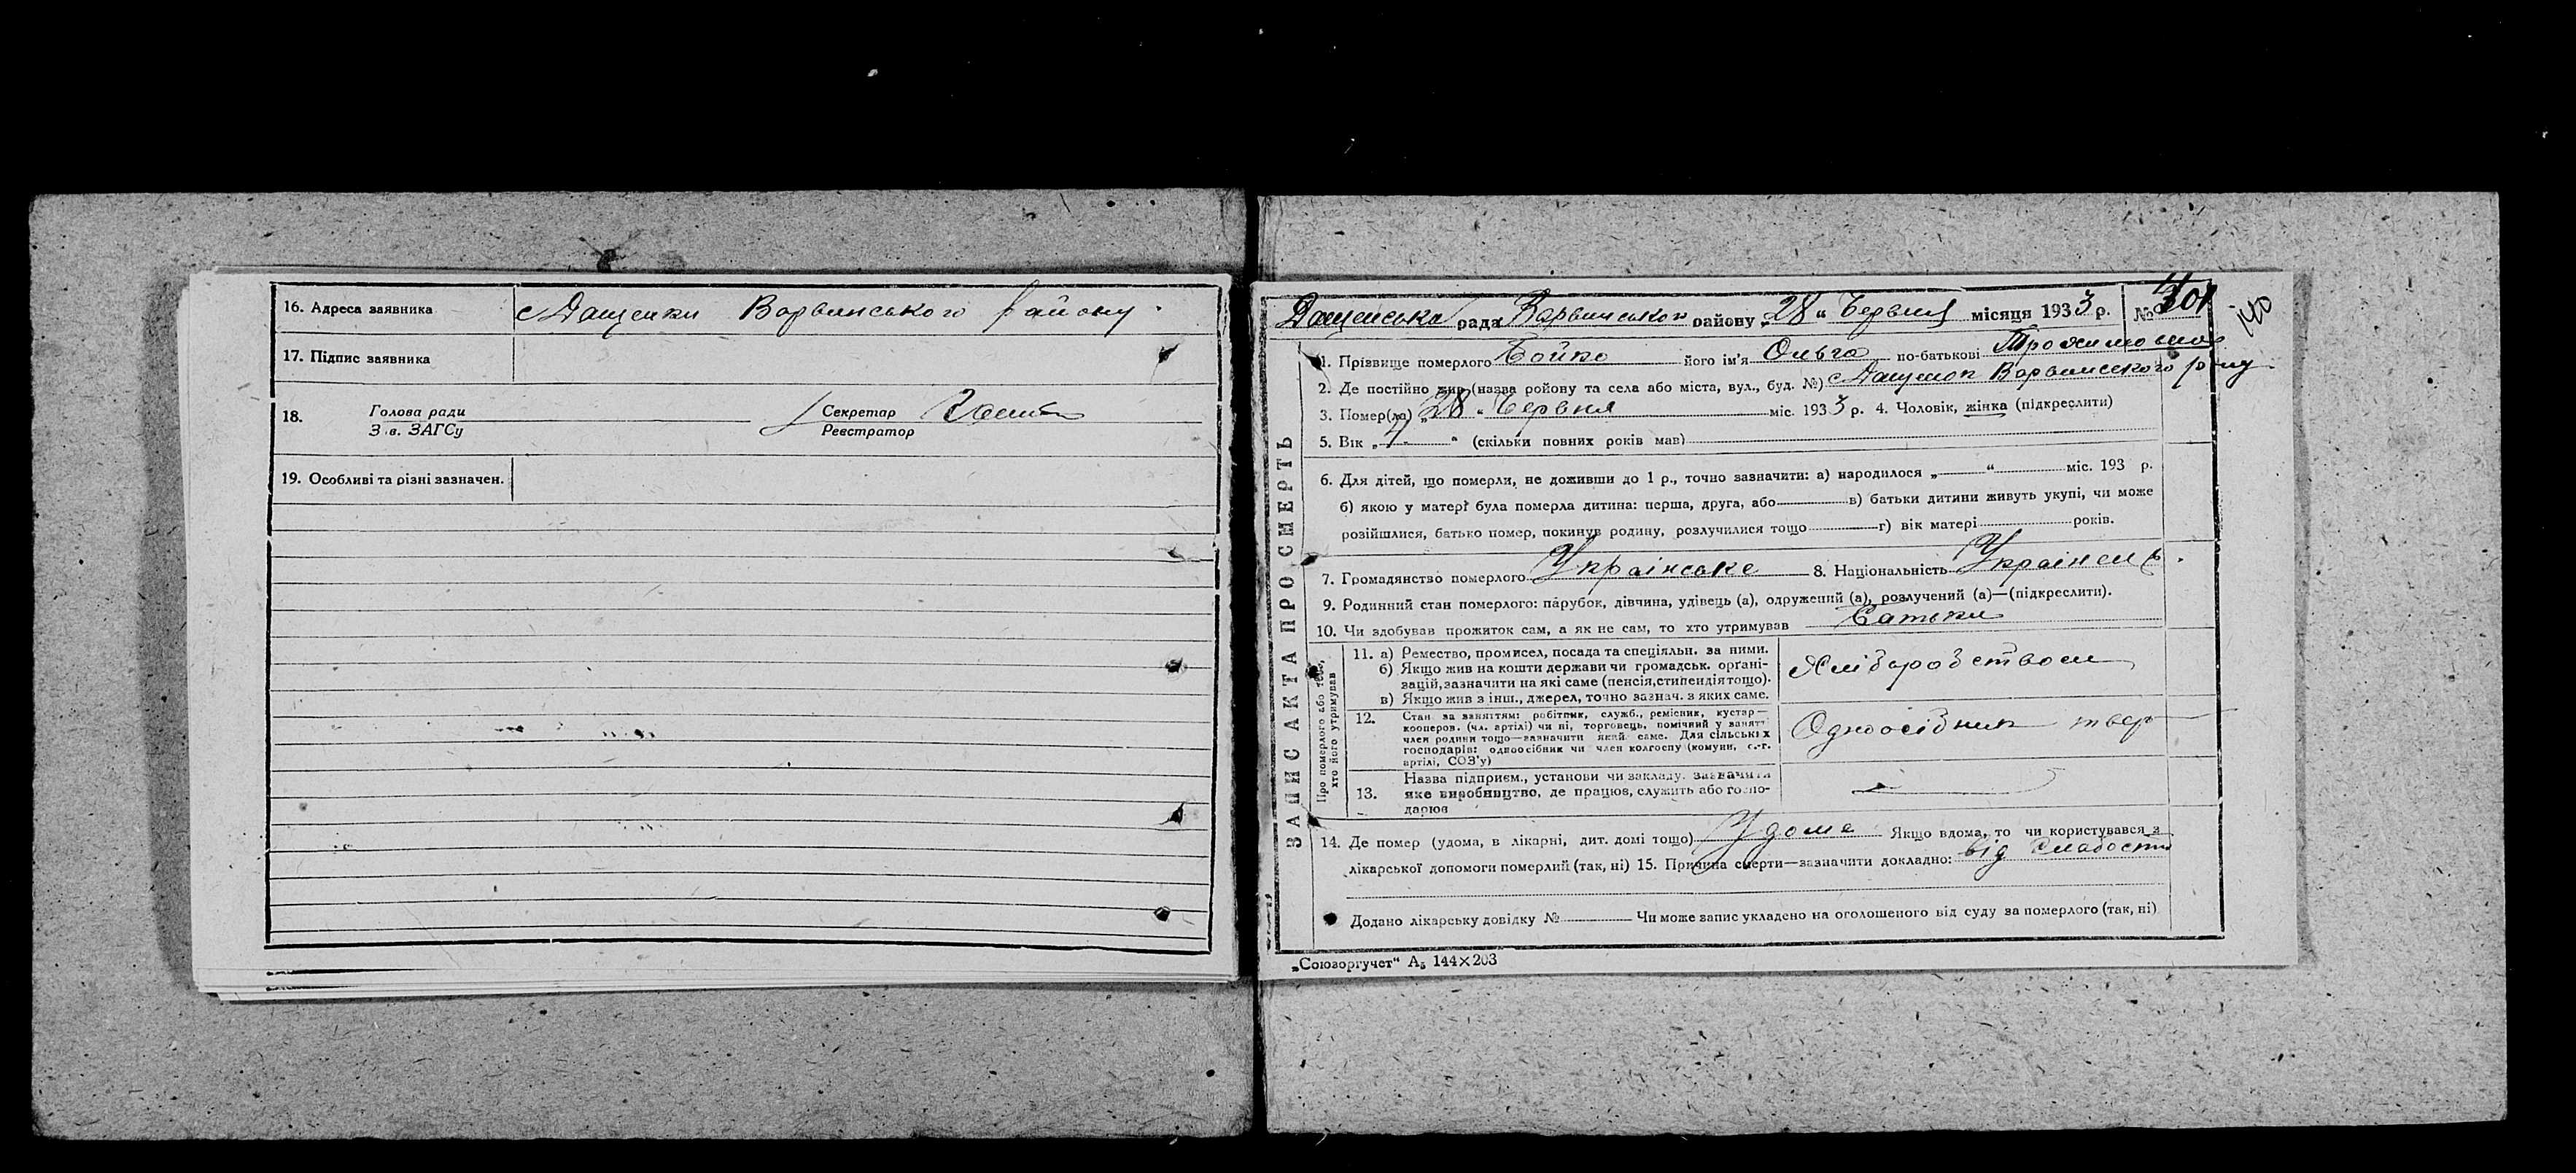 16. Адреса заявника с Дащенки Варвинського району.
17. Підпис заявника
18. Голова ради Секретар
Зав. ЗАГСу Реєстратор
19. Особливі та різні зазначен.
Дащенська рада Варвинського району „28“ Червня місяця 1933 р. №
140
ЗАПИС АКТА ПРО СМЕРТЬ
1. Прізвище померлого Бойко його ім'я Ольга по-батькові
2. Де постійно жив (назва ройону та села або міста, вул., буд. №) с Дащенк Варвинського р-ну
3. Помер(ла) „28“ Червня міс. 1933 р. 4. Чоловік, жінка (підкреслити)
5. Вік „4“ (скільки повних років мав)
6. Для дітей, що померли, не доживши до 1 р., точно зазначити: а) народилося „ “ міс. 193 р.
б) якою у матері була померла дитина: перша, друга, або в) батьки дитини живуть укупі, чи може
розійшлися, батько помер, покинув родину, розлучилися тощо г) вік матері років.
7. Громадянство померлого Українське 8. Національність
9. Родинний стан померлого: парубок, дівчина, удівець (а), одружений (а), розлучений (а)—(підкреслити).
10. Чи здобував прожиток сам, а як не сам, то хто утримував Батьки
Про померлого або того, хто його утримував
11. а) Ремество, промисел, посада та спеціяльн. за ними.
б) Якщо жив на кошти держави чи громадськ. органі-
зацій, зазначити на які саме (пенсія, стипендія тощо).
в) Якщо жив з інш., джерел, точно зазнач. з яких саме.
Хліборобством
12. Стан за заняттям: робітник, служб., ремісник, кустар—
кооперов. (чл. артілі) чи ні, торговець, помічний у занятт
член родини тощо—зазначити який саме. Для сільських
господарів: одноосібник чи член колгоспу (комуни, с.-г.
артілі, СОЗ'у)
Одноосібник твер
13. Назва підприєм., установи чи закладу, зазначити
яке виробництво, де працює, служить або госпо-
дарює
14. Де помер (удома, в лікарні, дит. домі тощо) Удома Якщо вдома, то чи користувався з
лікарської допомоги померлий (так, ні) 15. Причина смерти—зазначити докладно: від слабости
Додано лікарську довідку № Чи може запис укладено на оголошеного від суду за померлого (так, ні)
„Союзоргучет“ А₅ 144×203